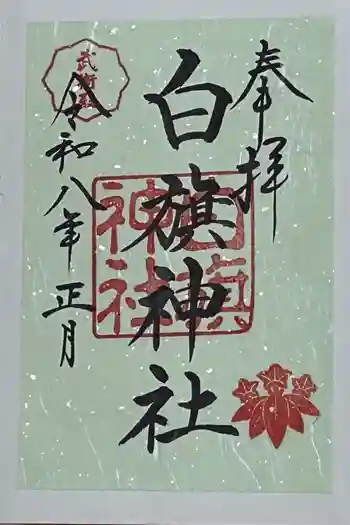 奉拝
白旗神社
令和八年正月
白旗
神社